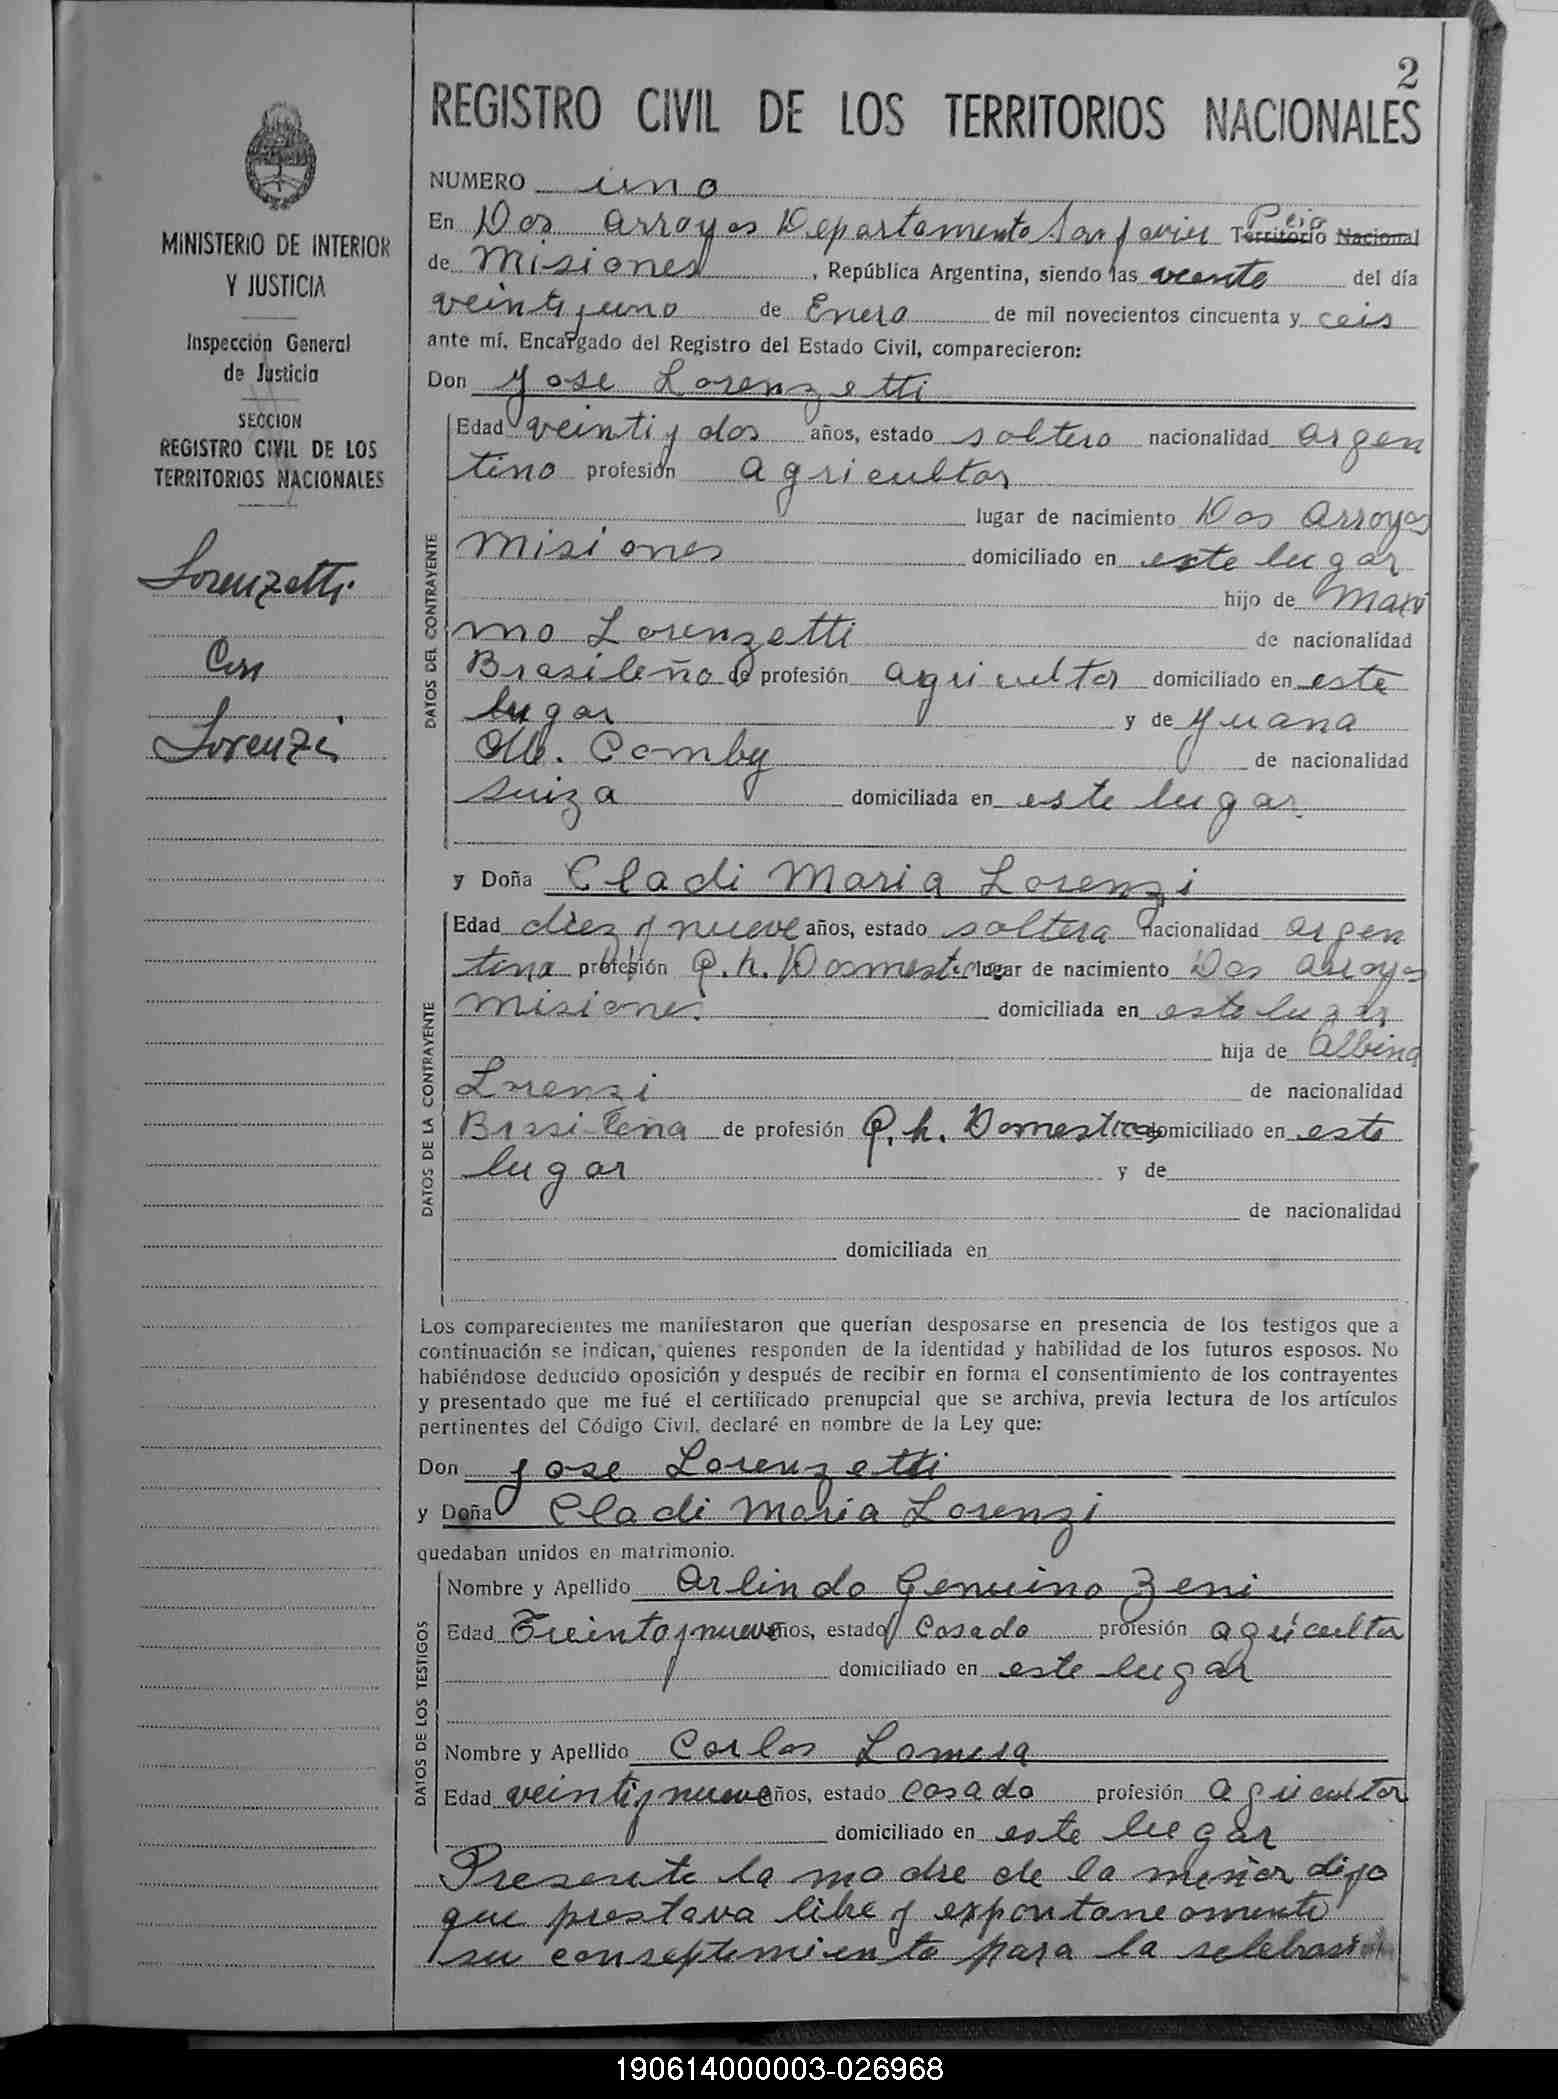 2
REGISTRO CIVIL DE LOS TERRITORIOS NACIONALES
MINISTERIO DE INTERIOR
Y JUSTICIA
Inspección General
de Justicia
SECCION
REGISTRO CIVIL DE LOS
TERRITORIOS NACIONALES
Lorenzetti
Con
Lorenzi
NUMERO uno
En Dos Arroyos Departamento San Javier Pcia Territorio Nacional
de Misiones, República Argentina, siendo las veente del día
veintiyuno de Enero de mil novecientos cincuenta y ceis
ante mí, Encargado del Registro del Estado Civil, comparecieron:
Don Jose Lorenzetti
DATOS DEL CONTRAYENTE
Edad veinti y dos años, estado soltero nacionalidad argen
tino profesión agricultor
lugar de nacimiento Dos Arroyos
Misiones domiciliado en este lugar
hijo de Maxi
mo Lorenzetti de nacionalidad
Brasileño de profesión agricultor domiciliado en este
lugar y de Juana
M. Comby de nacionalidad
suiza domiciliada en este lugar
y Doña Cladi Maria Lorenzi
DATOS DE LA CONTRAYENTE
Edad diez y nueve años, estado soltera nacionalidad argen
tina profesión Q. h. Domestica lugar de nacimiento Dos Arroyos
Misiones domiciliada en este lugar
hija de Albina
Lorenzi de nacionalidad
Brasileña de profesión Q. h. Domesticos domiciliado en este
lugar y de
de nacionalidad
domiciliada en
Los comparecientes me manifestaron que querían desposarse en presencia de los testigos que a
continuación se indican, quienes responden de la identidad y habilidad de los futuros esposos. No
habiéndose deducido oposición y después de recibir en forma el consentimiento de los contrayentes
y presentado que me fué el certificado prenupcial que se archiva, previa lectura de los artículos
pertinentes del Código Civil, declaré en nombre de la Ley que:
Don Jose Lorenzetti
y Doña Cladi Maria Lorenzi
quedaban unidos en matrimonio.
DATOS DE LOS TESTIGOS
Nombre y Apellido Arlindo Genuino Zeni
Edad Treinta y nueve años, estado Casado profesión agricultor
domiciliado en este lugar
Nombre y Apellido Carlos Lamera
Edad veinti y nueve años, estado Casado profesión agricultor
domiciliado en este lugar
Presente la madre de la menor dijo
que prestava libre y expontaneamente
su conseptimiento para la selebrasion
190614000003-026968